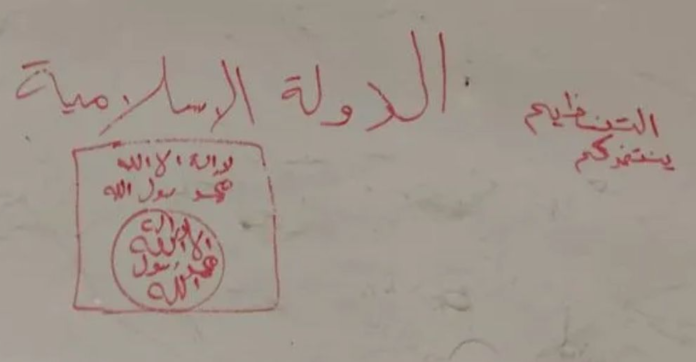 الدولة الإسلامية
التنظيم
ينتظركم
لا اله الا الله
محمد رسول الله
الله
رسول
محمد